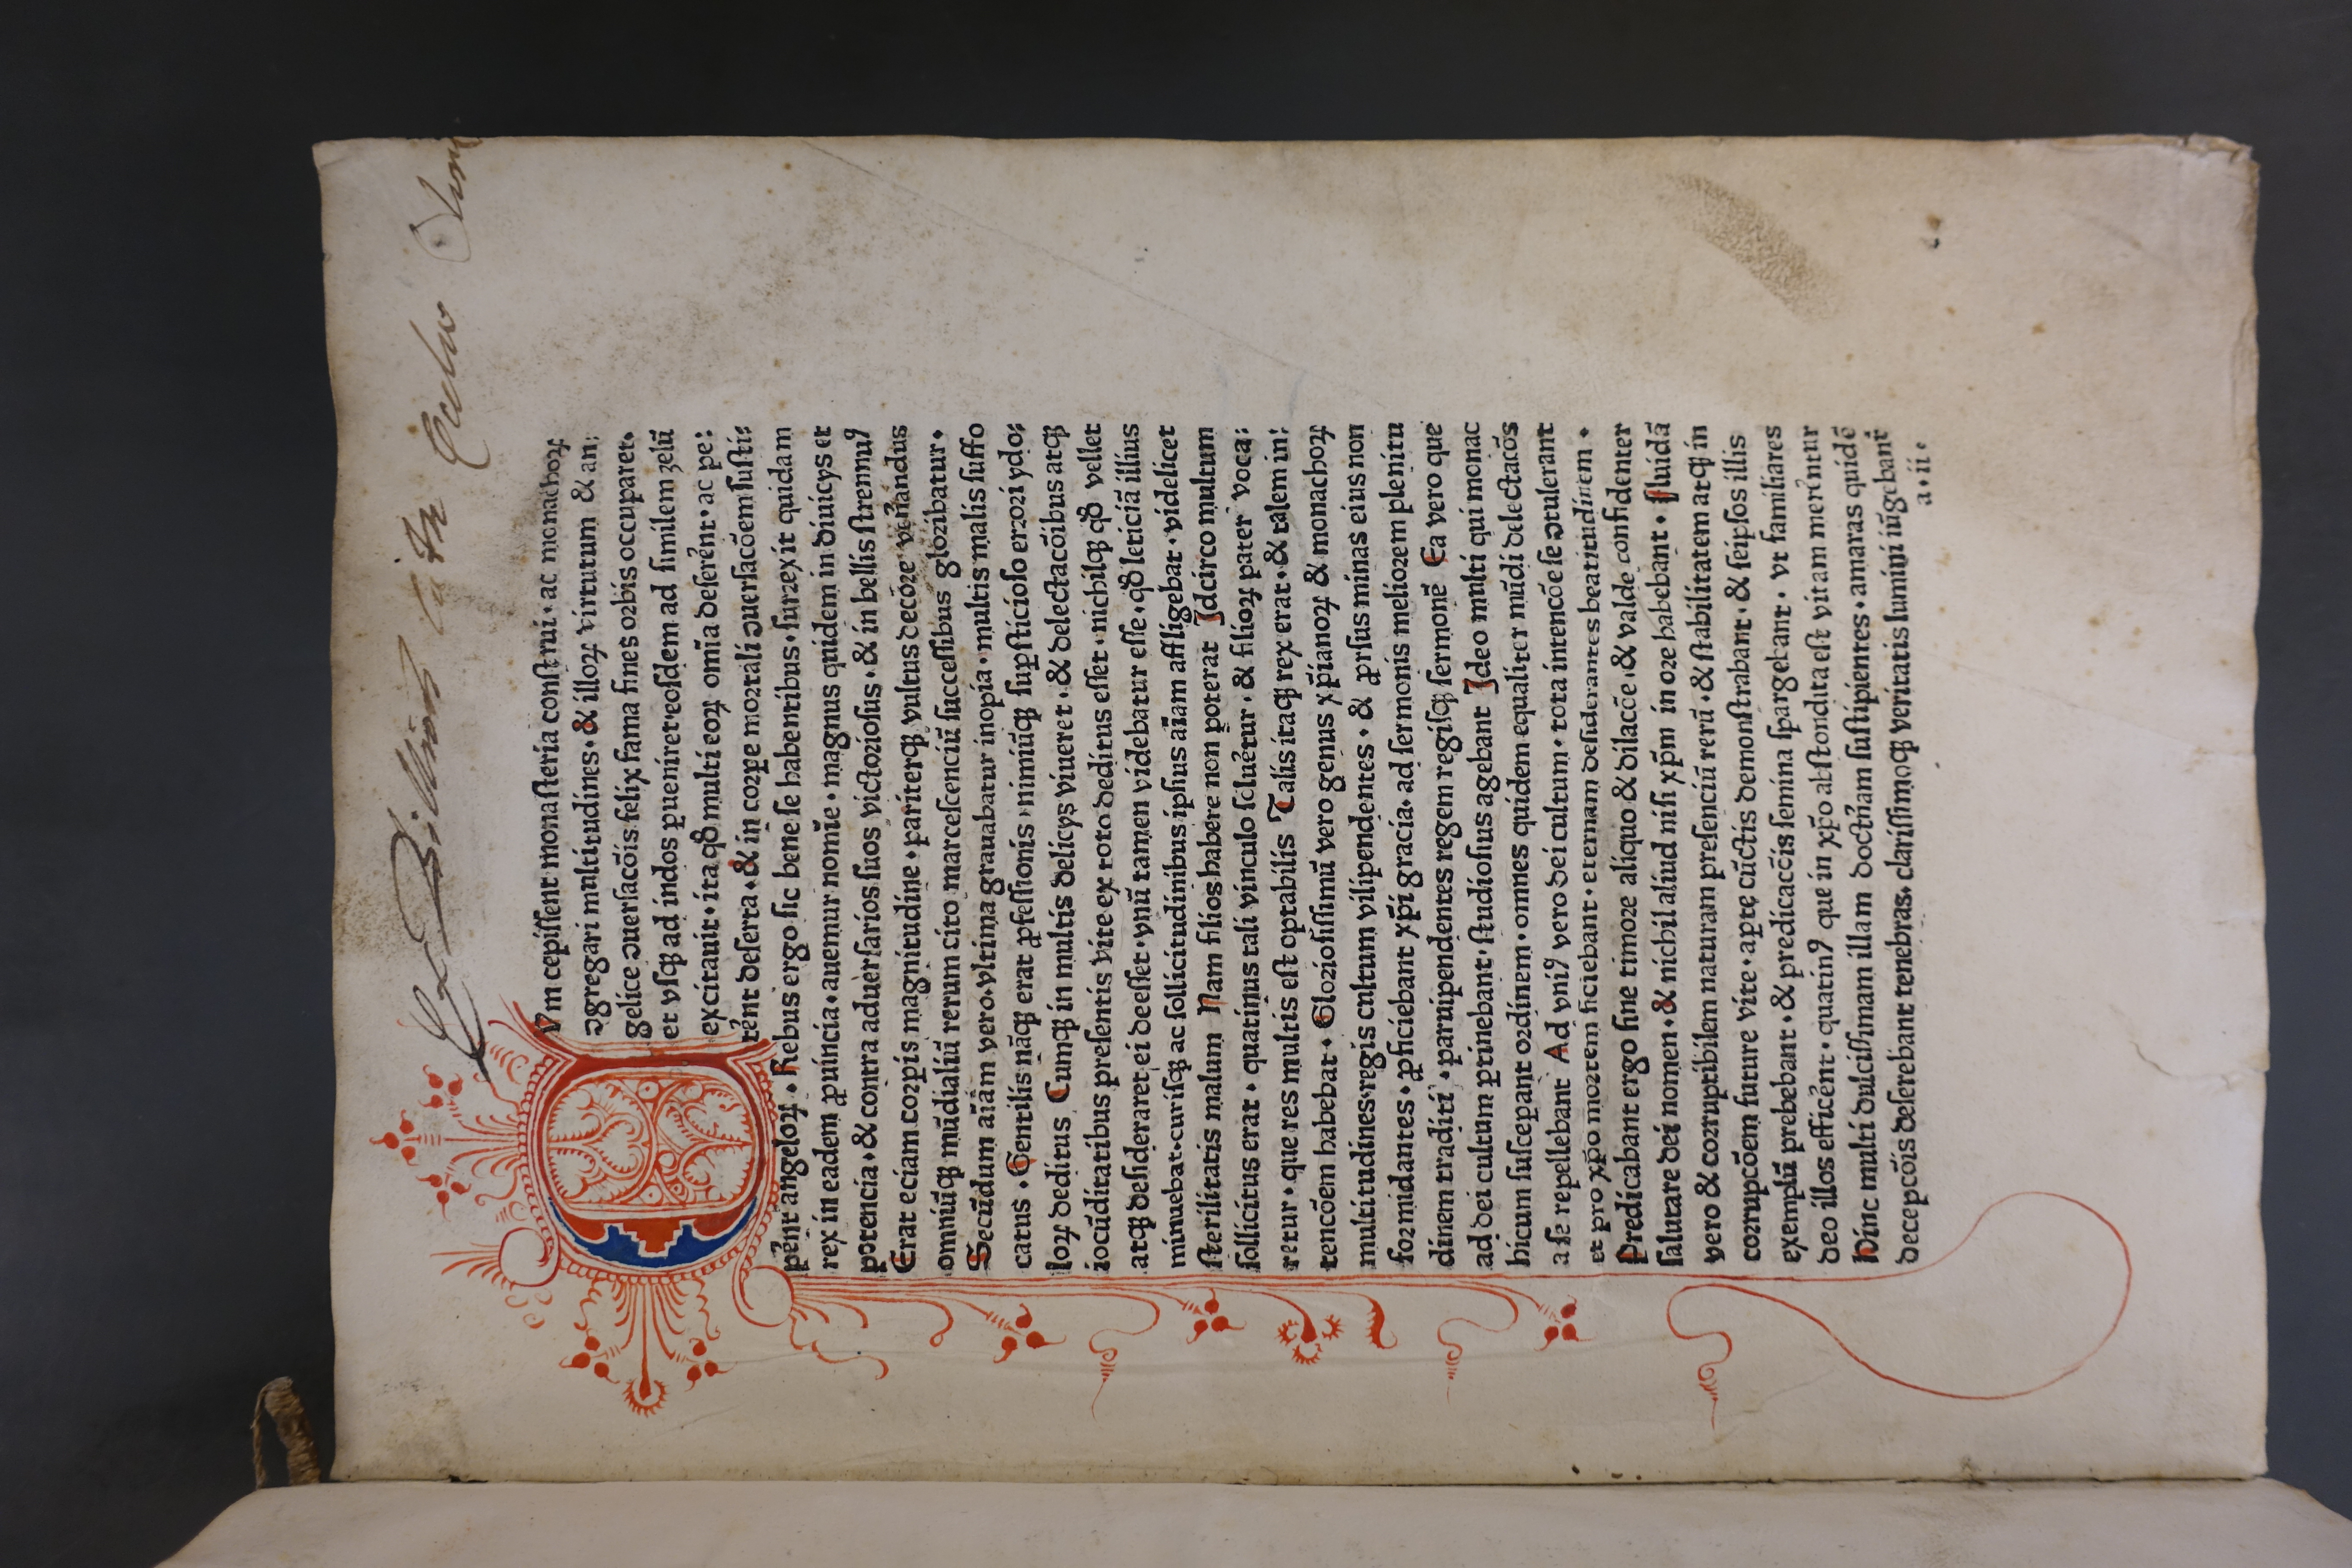 Ex Billioth
Vm cepiſſent monaſteria conſtrui · ac monachoꝝ
ↄgregari multitudines · & illoꝝ virtutum & an:
gelice ↄuerſacōis felix fama fines orbis occuparet ·
et vſqꝫ ad indos ꝑueniret eoſdem ad ſimilem zelū
excitauit · ita qđ multi eoꝝ omīa deſer̄ent · ac pe:
tr̄ent deſerta · & in corpe mortali ↄuerſacōem ſuſti:
pēnt angeloꝝ · Rebus ergo ſic bene ſe habentibus · ſurrexit quidam
rex in eadem ꝓuincia · auemur nomīe · magnus quidem in diuicijs et
potencia · & contra aduerſarios ſuos victorioſus · & in bellis ſtrennuꝰ
Erat eciam corpis magnitudine · pariterqꝫ vultus decore ven̄andus
omniūqꝫ mūdialiū rerum cito marceſcenciū ſucceſſibus gloribatur ·
Secūdum aīam vero · vltrima grauabatur inopia · multis malis ſuffo
catus · Gentilis nāqꝫ erat ꝓfeſſionis · nimiūqꝫ ſupſticioſo errori ydo:
loꝝ deditus Cumqꝫ in multis delicijs viueret · & delectacōibus atqꝫ
iocūditatibus preſentis vite ex toto deditus eſſet · nichilqꝫ qđ vellet
atqꝫ deſideraret ei deeſſet · vnū tamen videbatur eſſe · qđ leticiā illius
minuebat · curiſqꝫ ac ſollicitudinibus ipſius aīam affligebat · videlicet
ſterilitatis malum Nam filios habere non poterat Idcirco multum
ſollicitus erat · quatinus tali vinculo ſolueretur · & filioꝝ pater voca:
retur · que res multis eſt optabilis Talis itaqꝫ rex erat · & talem in:
tencōem habebat · Glorioſiſſimū vero genus xp̄ianoꝝ & monachoꝝ
multitudines · regis cultum vilipendentes · & ꝓrſus minas eius non
formidantes · ꝓficiebant xp̄i gracia · ad ſermonis meliorem plenitu
dinem traditi · paruipendentes regem regiſqꝫ ſermonē Ea vero que
ad dei cultum ꝑtinebant · ſtudioſius agebant Ideo multi qui monac
hicum ſuſcepant ordinem · omnes quidem equaliter mūdi delectacōs
a ſe repellebant Ad vniꝰ vero dei cultum · tota intencōe ſe ↄtulerant
et pro xp̄o mortem ſiciebant · eternam deſiderantes beatitudinem ·
Predicabant ergo ſine timore aliquo & dilacōe · & valde confidenter
ſalutare dei nomen · & nichil aliud niſi xp̄m in ore habebant · fluidā
vero & corruptibilem naturam preſenciū rerū · & ſtabilitatem atqꝫ in
corrupcōem future vite · apte cūctis demonſtrabant · & ſeipſos illis
exemplū prebebant · & predicacōis ſemina ſpargebant · vt familiares
deo illos efficēnt · quatinꝰ que in xp̄o abſcondita eſt vitam mer̄entur
Hinc multi dulciſſimam illam doctr̄inam ſuſtipientes · amaras quidē
decepcōis deſerebant tenebras · clariſſimoqꝫ veritatis lumini iūgebant̄
a · ii ·